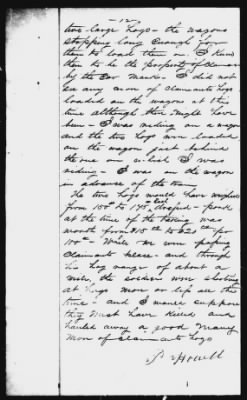 12
two large hogs - the wagons
stopping long enough for
them to load them in. I knew
them to be the property of claimant
by the Ear Marks. I did not
see any corn of claimants
loaded on the wagons at this
time although there might have
been - I was riding on a wagon
and the two hogs were loaded
on the wagon just behind
the one on which I was
riding - I was on the wagon
in advance of the train
The two hogs would have weighed
from 150 to 175 each dressed - pork
at the time of the taking was
worth from $18 to $20 per
100 - While we were passing
Claimants place - and through
his hog range of about a
mile, the soldiers were shooting
at hogs more or less all the
time - and I would suppose
they must have killed and
hauled away a good many
more of claimants hogs
Howell